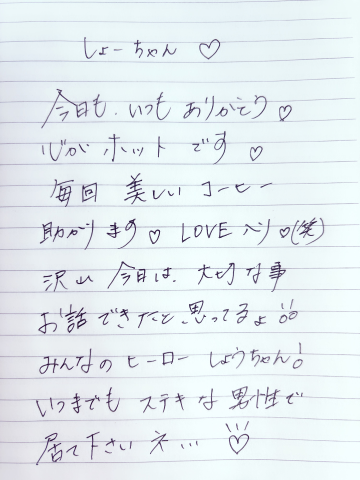 しょーちゃん ♡
今日も、いつも ありがとう ♡
心が ホット です ♡
毎回 美しい コーヒー
助かります♡ LOVE 入り♡(笑)
沢山 今日は、大切な事
お話できたと思ってるよ!!
みんなの ヒーロー しょうちゃん!
いつまでも ステキな男性で
居て下さいネ… ♡